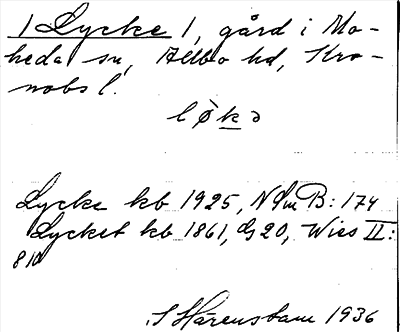 /Lycke/, gård i Mo-
heda sn, Allbo hd, Kro-
nobs l.
lø̀kə
Lycke kb 1925, NSmB: 174
Lycket kb 1861, G20, Wies II:
810
S Härenstam 1936